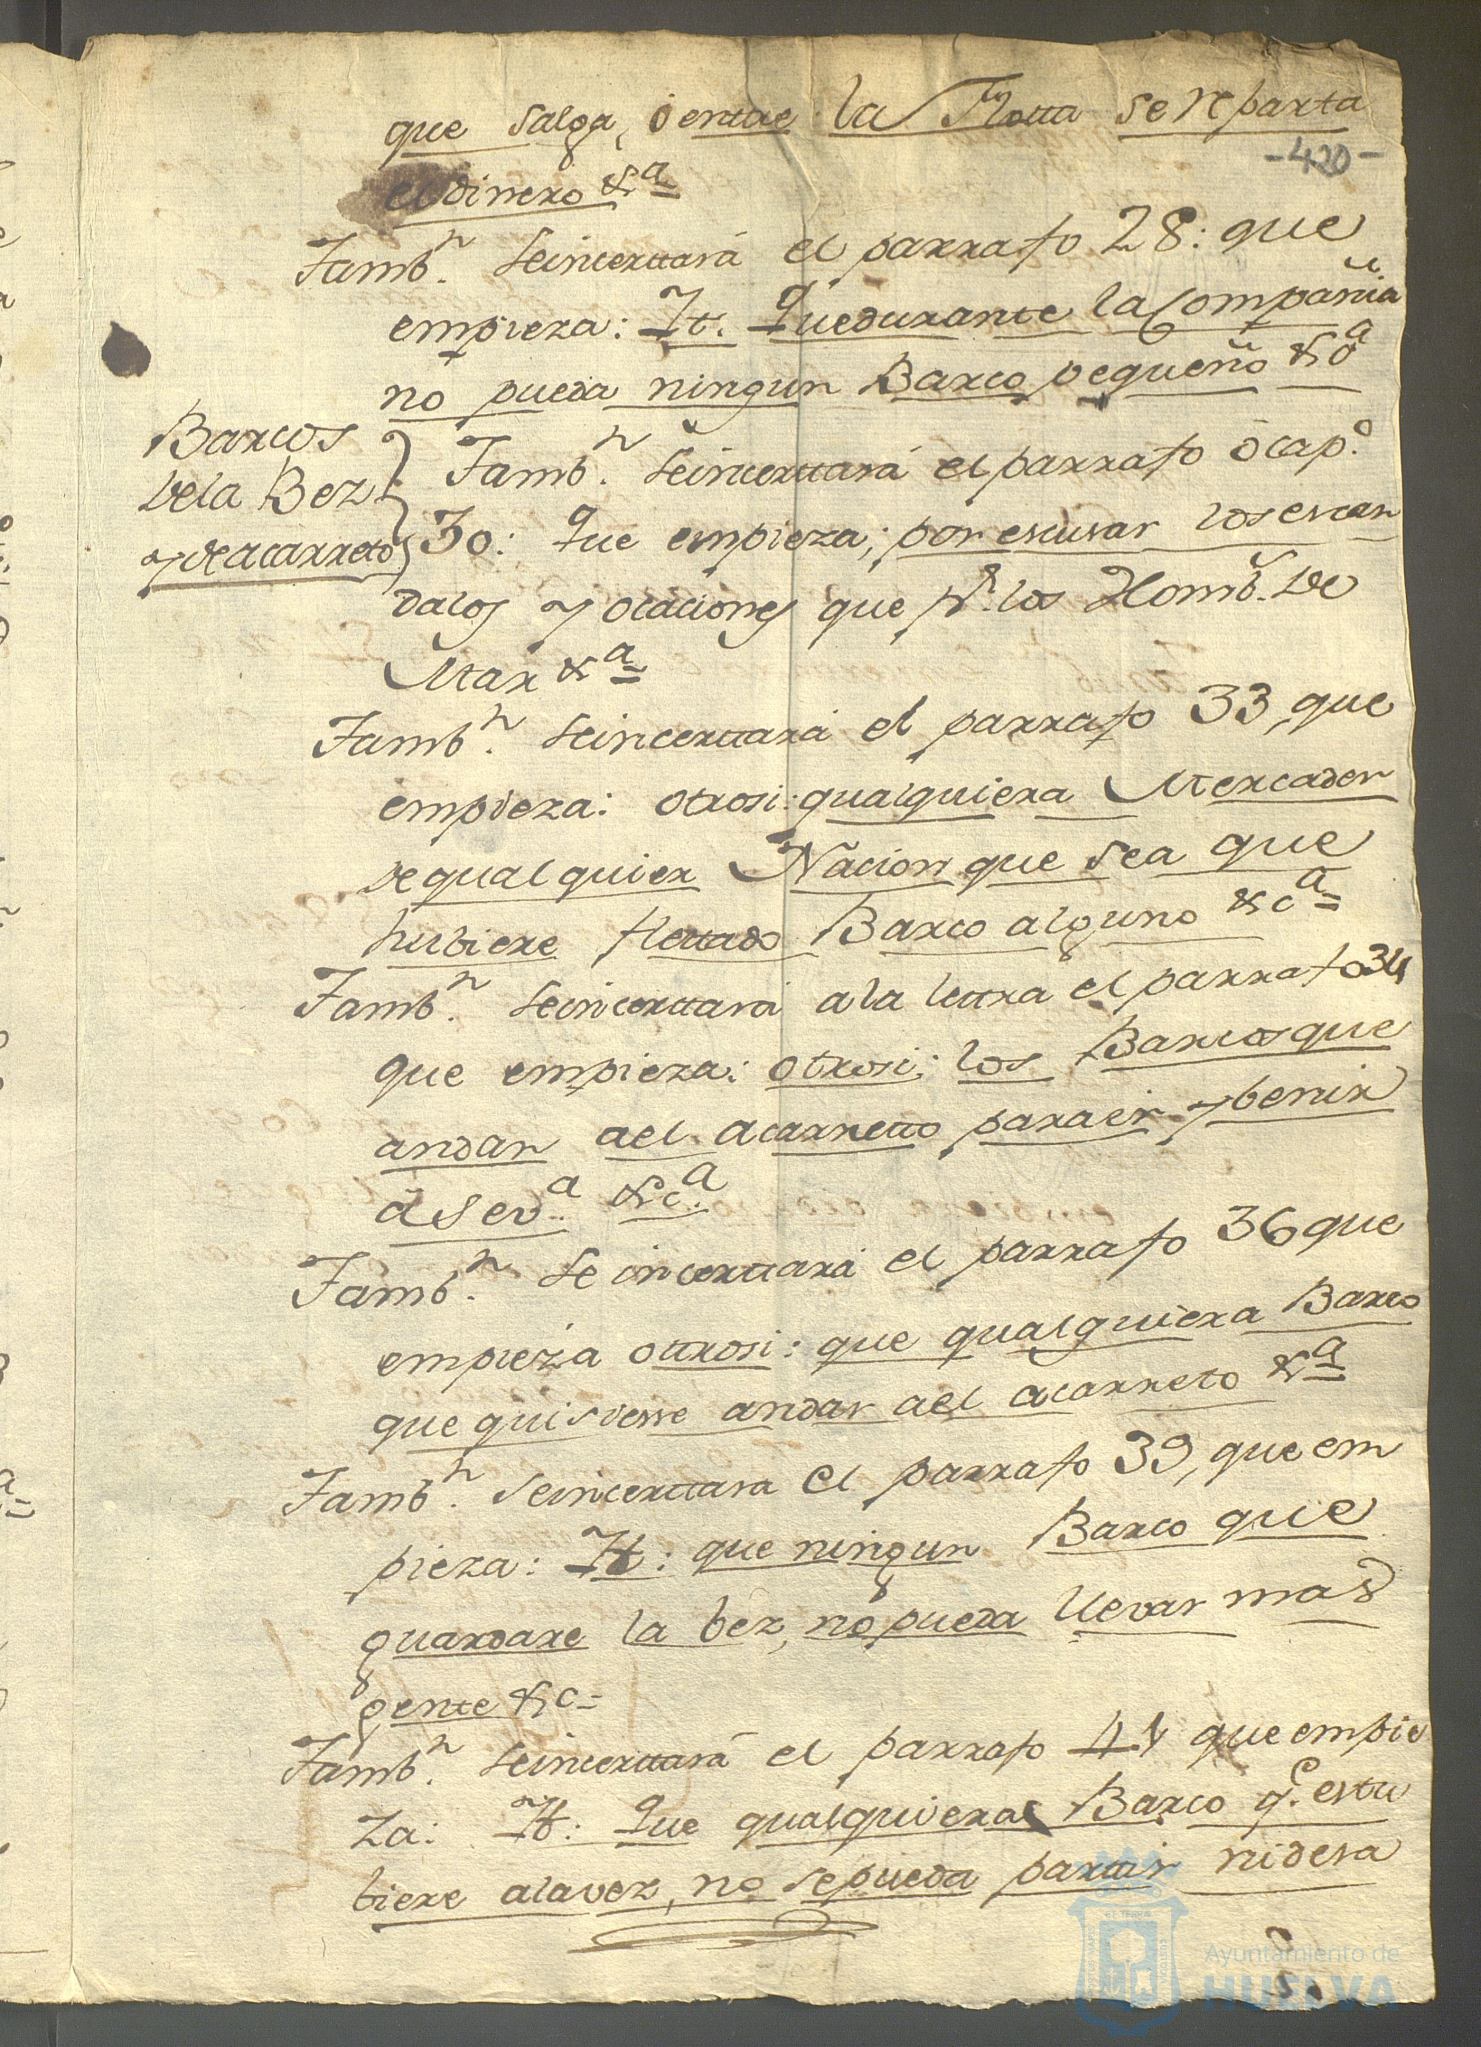 que salga, ó entre la Flotta se reparta
-420-
el dinero &a
Tambn. se incerttará el parrafo 28: que
empieza: It. Que durante la Compañia
no pueda ningun Barco pequeño &a
Barcos
de la Bez
y de acarreto
Tambn. se incerttará el parrafo ò capo.
30: Que empieza; por escusar los escan
dalos y ocaciones que pr. los Homb. de
Mar &a
Tambn. se incerttará el parrafo 33, que
empieza: otrosi: qualquiera Mercader
de qualquier Nacion que sea que
hubiere flettado Barco alguno &ca
Tambn. se incerttará a la lettra el parrafo 34
que empieza: otrosi: los Barcos que
andan ael acarretto para ir y benir
à Seva. &ca.
Tambn. se incerttará el parrafo 36 que
empieza ottrosi: que qualquiera Barco
que quisiesse andar ael acarreto &a
Tambn. se incerttara el parrafo 39, que em
pieza: It: que ningun Barco que
guardare la bez, no pueda llevar mas
gente &c
Tambn. se incerttará el parrafo 41 que empie
za: It: Que qualquiera Barco qe. estu
biere a la vez, no se pueda parttir ni desa
Ayuntamiento de
HUELVA